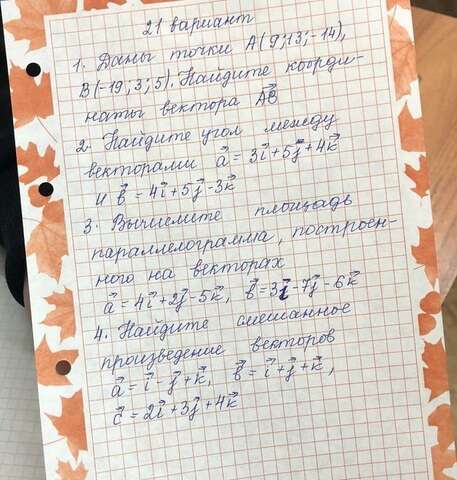 21 вариант
1. Даны точки A(9;13;-14),
B(-19;3;5). Найдите коорди-
наты вектора A⃗B⃗
2. Найдите угол между
векторами a⃗ = 3i⃗+5j⃗+4k⃗
и b⃗ = 4i⃗+5j⃗-3k⃗
3. Вычислите площадь
параллелограмма, построен-
ного на векторах
a⃗ = 4i⃗+2j⃗-5k⃗, b⃗=3i⃗-7j⃗-6k⃗
4. Найдите смешанное
произведение векторов
a⃗ = i⃗-j⃗+k⃗, b⃗ = i⃗+j⃗+k⃗,
c⃗ = 2i⃗+3j⃗+4k⃗